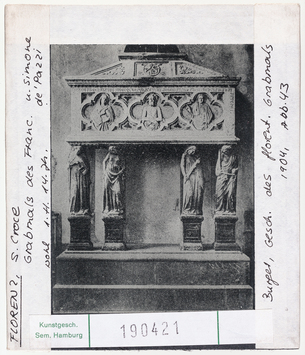 FLORENZ, S. Croce
Grabmals des Franc. u. Simone
de' Pazzi
wohl 2. H. 14. Jh.
Burger, Gesch. des florent. Grabmals
1904, Abb. 43
Kunstgesch.
Sem. Hamburg
190421